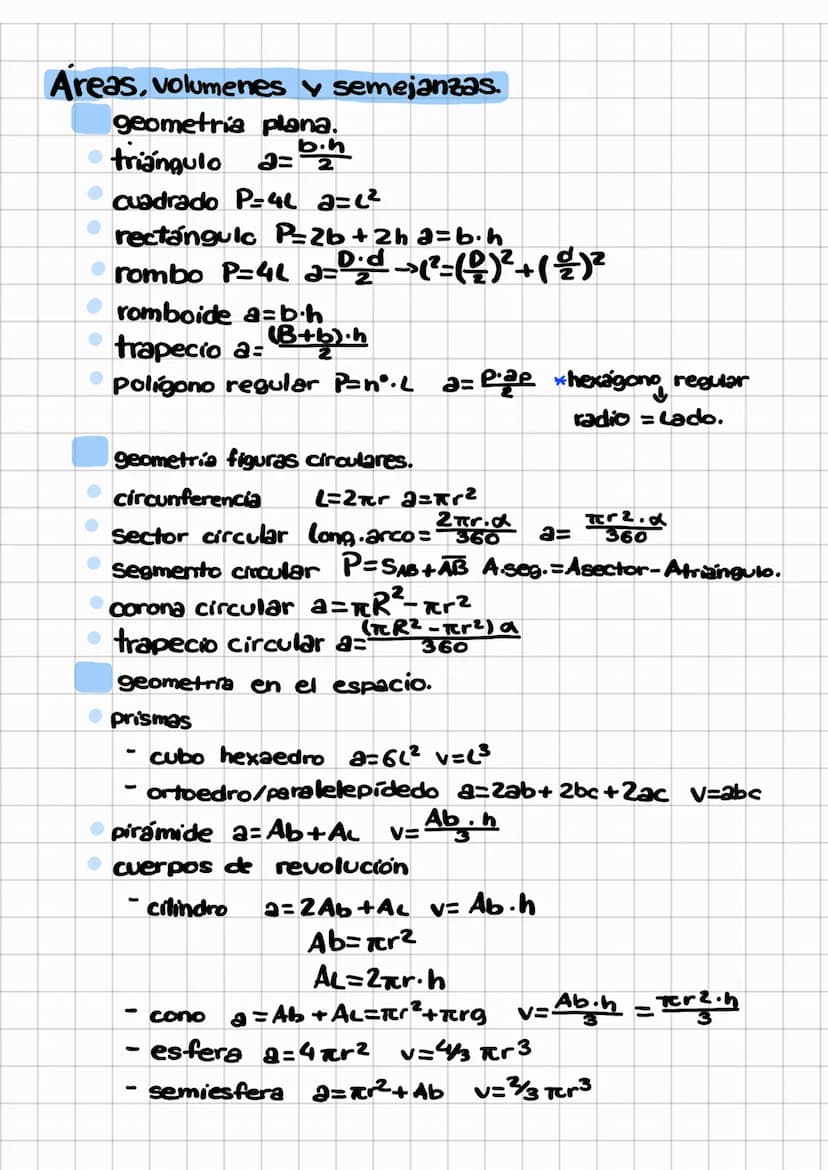 Áreas, volumenes y semejanzas.
geometría plana.
triángulo a=b·h/2
cuadrado P=4L a=L²
rectángulo P=2b+2h a=b·h
rombo P=4L a=D·d/2 →L²=(D/2)²+(d/2)²
romboide a=b·h
trapecio a=(B+b)·h/2
polígono regular P=nº·L a=P·ap/2 *hexágono regular
↓
radio = Lado.
geometría figuras circulares.
circunferencia L=2πr a=πr²
sector circular long.arco=2πr·α/360 a=πr²·α/360
segmento circular P=SAB+A̅B̅ A.seg.=Asector-Atriángulo.
corona circular a=πR²-πr²
trapecio circular a=(πR²-πr²)α/360
geometría en el espacio.
prismas
- cubo hexaedro a=6L² v=L³
- ortoedro/paralelepídedo a=2ab+2bc+2ac v=abc
pirámide a=Ab+AL v=Ab·h/3
cuerpos de revolución
- cilindro a=2Ab+AL v=Ab·h
Ab=πr²
AL=2πr·h
- cono a=Ab+AL=πr²+πrg v=Ab·h/3=πr²·h/3
- esfera a=4πr² v=4/3 πr³
- semiesfera a=πr²+Ab v=2/3 πr³